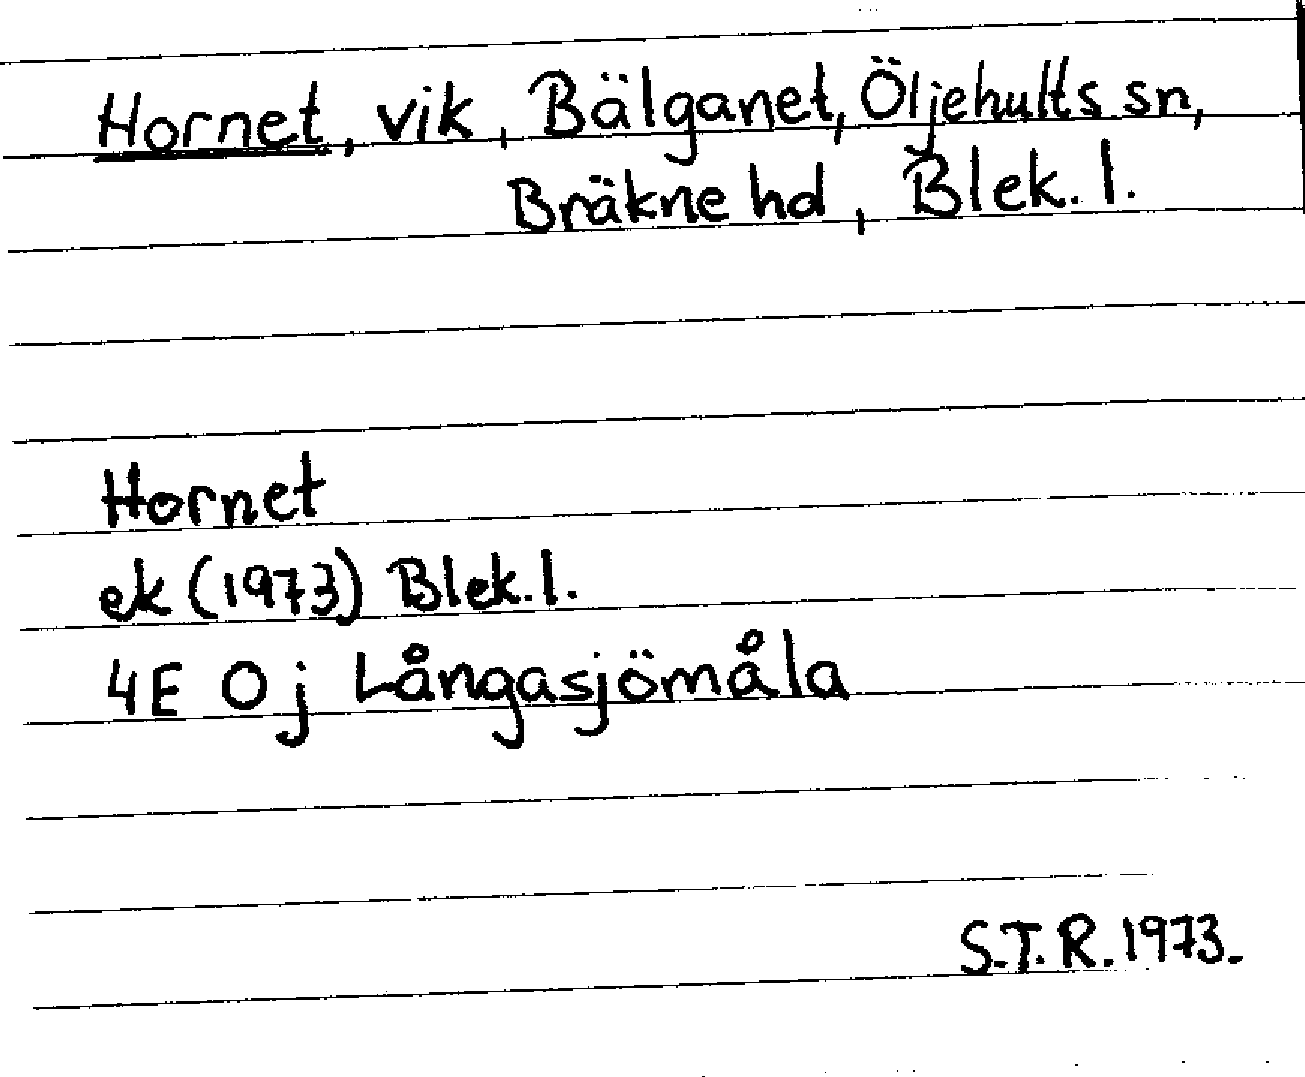 Hornet, vik, Bälganet, Öljehults sn,
Bräkne hd, Blek. l.
Hornet
ek (1973) Blek. l.
4E 0 j Långasjömåla
S.T.R. 1973.